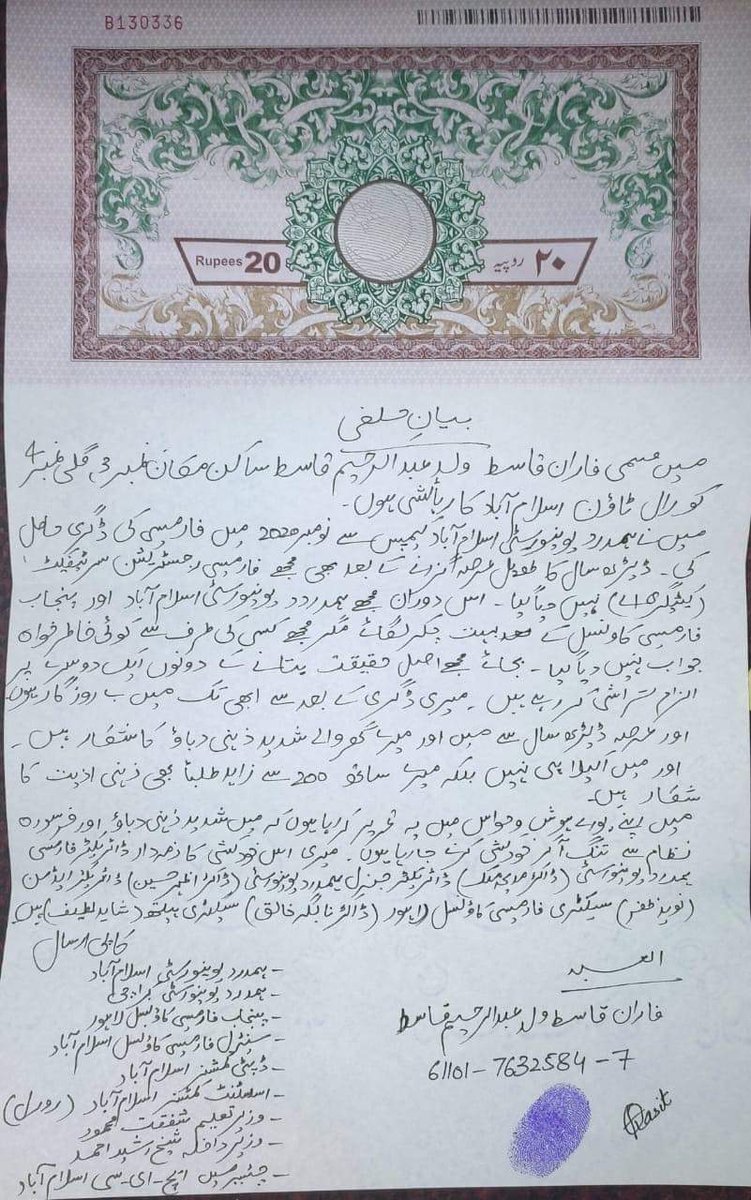 B130336
Rupees 20
۲۰ روپیہ
بیانِ حلفی
میں مسمی فاران قاسط ولد عبدالرحیم قاسط ساکن مکان نمبر 3، گلی نمبر 4
کورال ٹاؤن اسلام آباد کا رہائشی ہوں۔
میں نے ہمدرد یونیورسٹی اسلام آباد کیمپس سے نومبر 2020 میں فارمیسی کی ڈگری حاصل
کی۔ ڈیڑھ سال کا طویل عرصہ گزرنے کے بعد بھی مجھے فارمیسی رجسٹریشن سرٹیفکیٹ
(کیٹگری اے) نہیں دیا گیا۔ اس دوران مجھے ہمدرد یونیورسٹی اسلام آباد اور پنجاب
فارمیسی کاونسل کے بہت چکر لگائے مگر مجھے کسی کی طرف سے کوئی خاطر خواہ
جواب نہیں دیا گیا۔ بجائے مجھے اصل حقیقت بتانے کے دونوں ایک دوسرے پر
الزام تراشی کر رہے ہیں۔ میری ڈگری کے بعد سے ابھی تک میں بے روزگار ہوں۔
اور عرصہ ڈیڑھ سال سے میں اور میرے گھر والے شدید ذہنی دباؤ کا شکار ہیں۔
اور میں اکیلا ہی نہیں بلکہ میرے ساتھ 200 سے زاید طلبا بھی ذہنی اذیت کا
شکار ہیں۔
میں اپنے پورے ہوش و حواس میں یہ تحریر کر رہا ہوں کہ میں شدید ذہنی دباؤ اور فرسودہ
نظام سے تنگ آکر خودکشی کرنے جا رہا ہوں۔ میری اس خودکشی کا ذمہ دار ڈائریکٹر فارمیسی
ہمدرد یونیورسٹی (ڈاکٹر ملک) ڈائریکٹر جنرل ہمدرد یونیورسٹی (ڈاکٹر اظہر حسین) ڈائریکٹر ایڈمن
(نوید ظفر) سیکٹری فارمیسی کاؤنسل لاہور (ڈاکٹر نائلہ خالق) سیکٹری ہیلتھ (شاہد لطیف) ہیں
کاپی ارسال
- ہمدرد یونیورسٹی اسلام آباد
- ہمدرد یونیورسٹی کراچی
- پنجاب فارمیسی کاؤنسل لاہور
- سینٹرل فارمیسی کاؤنسل اسلام آباد
- ڈپٹی کمشنر اسلام آباد
- اسسٹنٹ کمشنر اسلام آباد (رورل)
- وزیر تعلیم شفقت محمود
- وزیر داخلہ شیخ رشید احمد
- چئیرمین ایچ-ای-سی اسلام آباد
العبد
فاران قاسط ولد عبدالرحیم قاسط
61101-7632584-7
Qasit